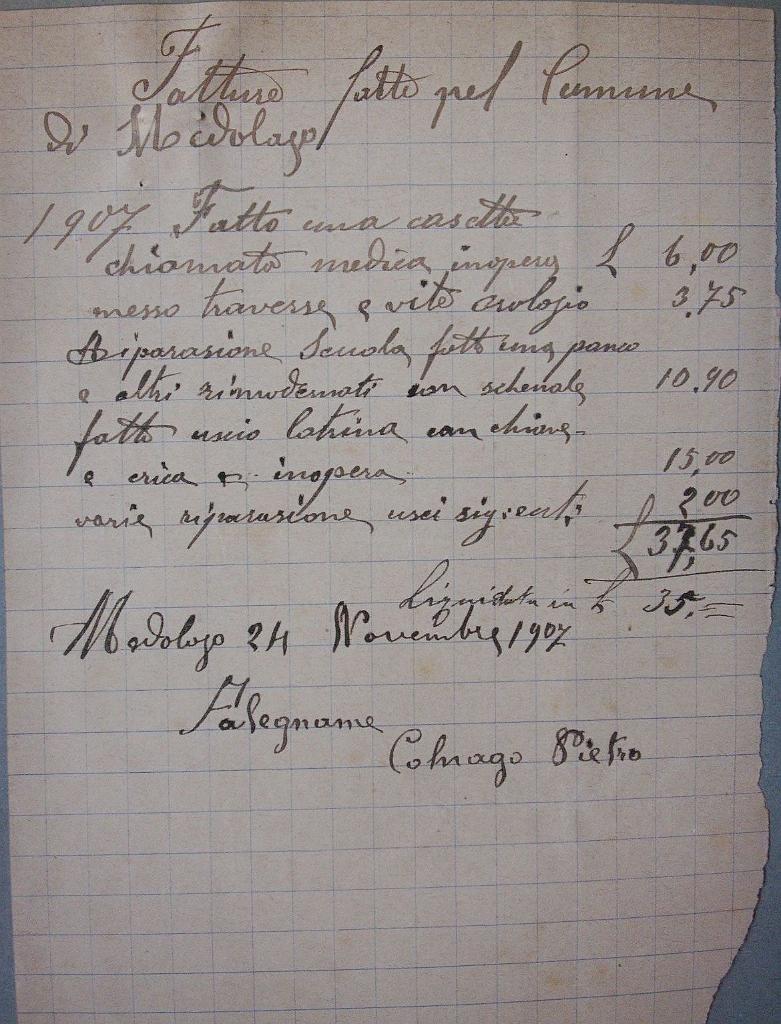 Fatture fatte pel Comune
di Medolago
1907 Fatto una casetta
chiamata medica, inopera L 6,00
messo traverse, e vite orologio 3.75
Riparasione Scuola, fatt una panca
e altri rimodernati con schenale 10.90
fatto uscio latrina con chiave
e inopera 15,00
varie, riparasione, usci 2,00
37,65
Liquidata in L 35.=
Medolago 24 Novembre, 1907
Falegname
Colnago Pietro